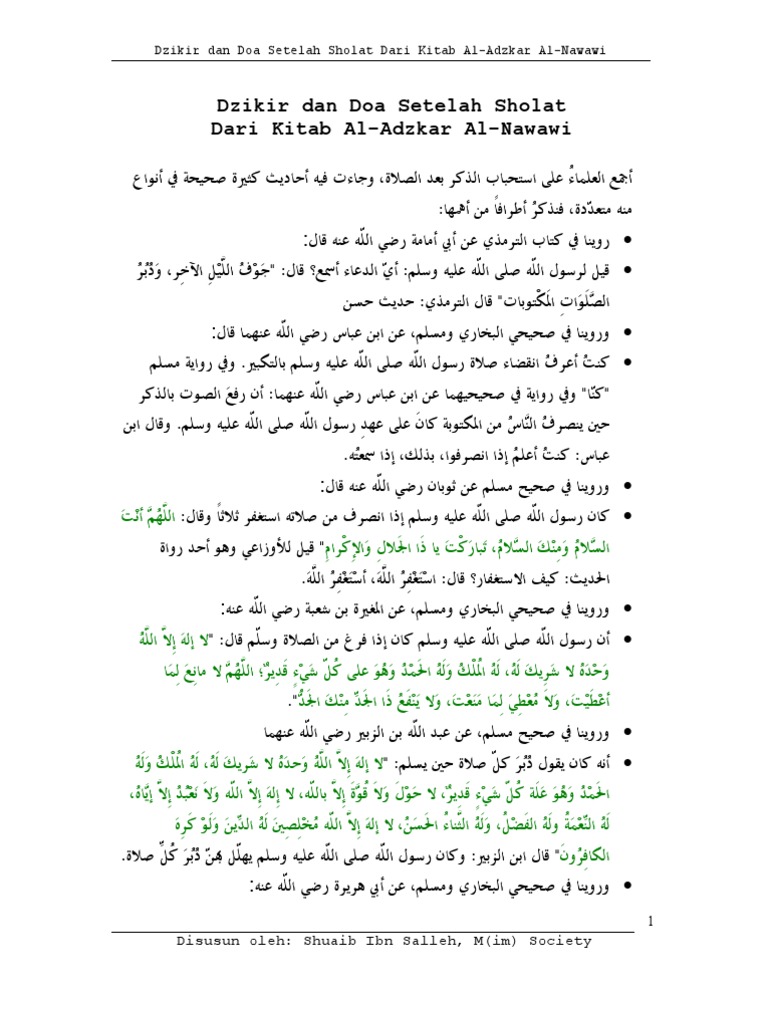 Dzikir dan Doa Setelah Sholat Dari Kitab Al-Adzkar Al-Nawawi
Dzikir dan Doa Setelah Sholat
Dari Kitab Al-Adzkar Al-Nawawi
أجمع العلماءُ على استحباب الذكر بعد الصلاة، وجاءت فيه أحاديث كثيرة صحيحة في أنواع
منه متعدّدة، فنذكرُ أطرافاً من أهمها:
• روينا في كتاب الترمذي عن أبي أمامة رضي اللّه عنه قال:
• قيل لرسول اللّه صلى اللّه عليه وسلم: أيّ الدعاء أسمع؟ قال: "جَوْفُ اللَّيْلِ الآخِر، وَدُبُرُ
الصَّلَوَاتِ المَكْتوبات" قال الترمذي: حديث حسن
• وروينا في صحيحي البخاري ومسلم، عن ابن عباس رضي اللّه عنهما قال:
• كنتُ أعرفُ انقضاء صلاة رسول اللّه صلى اللّه عليه وسلم بالتكبير. وفي رواية مسلم
"كنّا" وفي رواية في صحيحيهما عن ابن عباس رضي اللّه عنهما: أن رفعَ الصوت بالذكر
حين ينصرفُ النَّاسُ من المكتوبة كانَ على عهدِ رسول اللّه صلى اللّه عليه وسلم. وقال ابن
عباس: كنتُ أعلمُ إذا انصرفوا، بذلك، إذا سمعتُه.
• وروينا في صحيح مسلم عن ثوبان رضي اللّه عنه قال:
• كان رسول اللّه صلى اللّه عليه وسلم إذا انصرف من صلاته استغفر ثلاثاً وقال: اللَّهُمَّ أنْتَ
السَّلامُ وَمِنْكَ السَّلامُ، تَبارَكْتَ يا ذَا الجَلالِ وَالإِكْرامِ" قيل للأوزاعي وهو أحد رواة
الحديث: كيف الاستغفار؟ قال: اسْتَغْفِرُ اللَّهَ، أسْتَغْفِرُ اللَّهَ.
• وروينا في صحيحي البخاري ومسلم، عن المغيرة بن شعبة رضي اللّه عنه:
• أن رسول اللّه صلى اللّه عليه وسلم كان إذا فرغ من الصلاة وسلّم قال: "لا إلهَ إِلاَّ اللَّهُ
وَحْدَهُ لا شَرِيكَ لَهُ، لَهُ المُلْكُ وَلَهُ الحَمْدُ وَهُوَ على كُلّ شَيْءٍ قَدِيرٌ؛ اللَّهُمَّ لا مانِعَ لِمَا
أعْطَيْتَ، وَلا مُعْطِيَ لِمَا مَنَعْتَ، وَلا يَنْفَعُ ذَا الجَدّ مِنْكَ الجَدُّ".
• وروينا في صحيح مسلم، عن عبد اللّه بن الزبير رضي اللّه عنهما
• أنه كان يقول دُبُرَ كلّ صلاة حين يسلم: "لا إلهَ إِلاَّ اللَّهُ وَحدَهُ لا شَرِيكَ لَهُ، لَهُ المُلْكُ وَلَهُ
الحَمْدُ وَهُوَ عَلَة كُلّ شَيْءٍ قَدِيرٌ، لا حَوْلَ وَلا قُوَّةَ إِلاَّ باللّه، لا إلهَ إِلاَّ اللّه وَلا نَعْبُدُ إلاَّ إيَّاهُ،
لَهُ النِّعْمَةُ ولَهُ الفَضْلُ، وَلَهُ الثَّناءُ الحَسَنُ، لا إلهَ إِلاَّ اللّه مُخْلِصِينَ لَهُ الدّينَ وَلَوْ كَرِهَ
الكافِرُونَ" قال ابن الزبير: وكان رسول اللّه صلى اللّه عليه وسلم يهلّل بهنّ دُبُرَ كُلّ صلاة.
• وروينا في صحيحي البخاري ومسلم، عن أبي هريرة رضي اللّه عنه:
1
Disusun oleh: Shuaib Ibn Salleh, M(im) Society